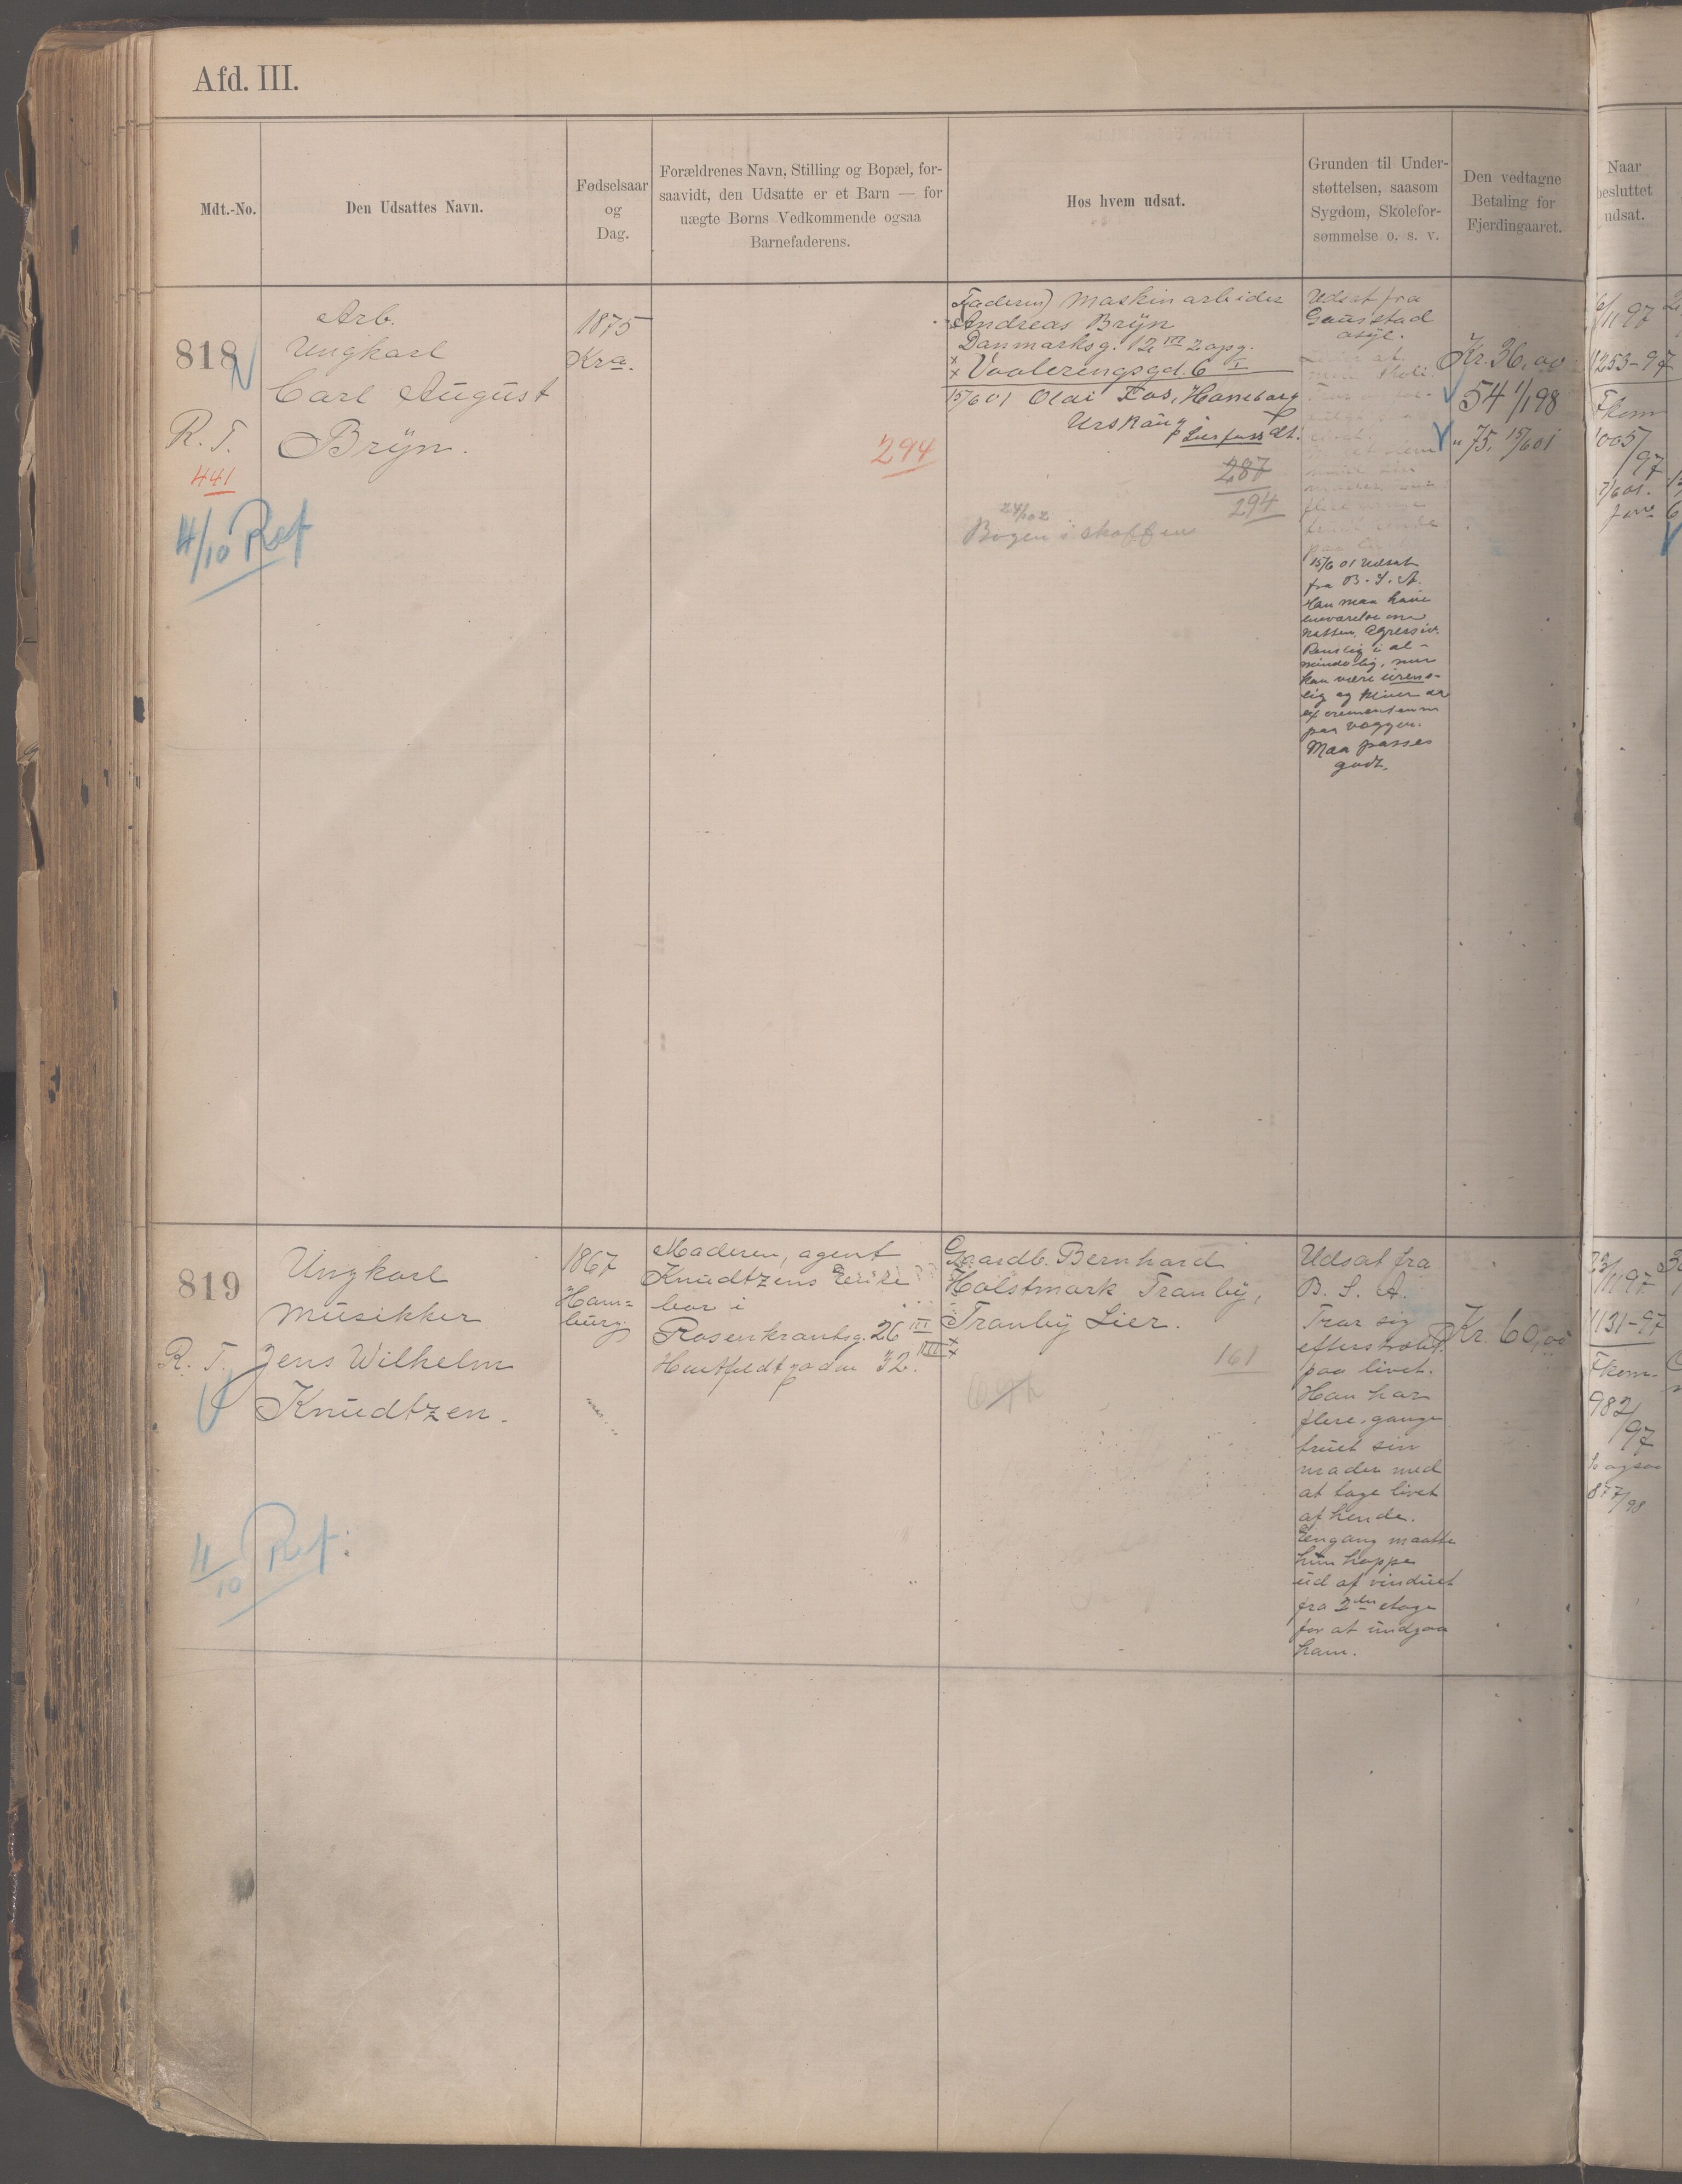 Afd. III.
Mdt.-No.
Den Udsattes Navn.
Fødselsaar
og
Dag.
Forældrenes Navn, Stilling og Bopæl, for-
saavidt, den Udsatte er et Barn — for
uægte Børns Vedkommende ogsaa
Barnefaderens.
Hos hvem udsat.
Grunden til Under-
støttelsen, saasom
Sygdom, Skolefor-
sømmelse o. s. v.
Den vedtagne
Betaling for
Fjerdingaaret.
Naar
besluttet
udsat.
818
R. T.
441
4/10 Ref
Arb.
Ungkarl
Carl August
Brÿn.
1875
Kra.
294
Faderen) Maskinarbeider
Andreas Brÿn
Danmarksg. 12 III 2 opg.
Vaaleringsgd. 6 I
15/6 01 Olai Fos, Haneborg
Urskaug
287
294
24/1 02
Bogen i skuffen
Udsat fra
Gaustad
asÿl.
15/6 01 Udsat
fra B. S. A.
Han maa have
bevarelse om
natten. Agressiv.
Renslig i al-
mindelig, men
kan være urens-
lig og kliner
excrementerne
paa væggen.
Maa passes
godt.
Kr. 36,00
54 1/1 98
" 75, 15/6 01
/11 97
1253-97
Fkom
1005/
97
7/6 01.
819
R. T.
4/10 Ref.
Ungkarl
Musikker
Jens Wilhelm
Knudtzen.
1867
Ham=
burg.
Moderen, agent
Knudtzens Enke
bor i
Rosenkrantsg. 26 III
Huitfeldtgaden 32. III
Gaardb. Bernhard
Holstmark Tranbÿ,
Tranbÿ Lier.
161
Udsat fra
B. S. A.
Tror sig
efterstræbt
paa livet.
Han har
flere gange
truet sin
moder med
at tage livet
af hende.
Engang maatte
hun hoppe
ud af vinduet
fra 2den etage
for at undgaa
ham.
Kr. 60,00
23/11 97
1131-97
Fkom.
982/
97
877/98